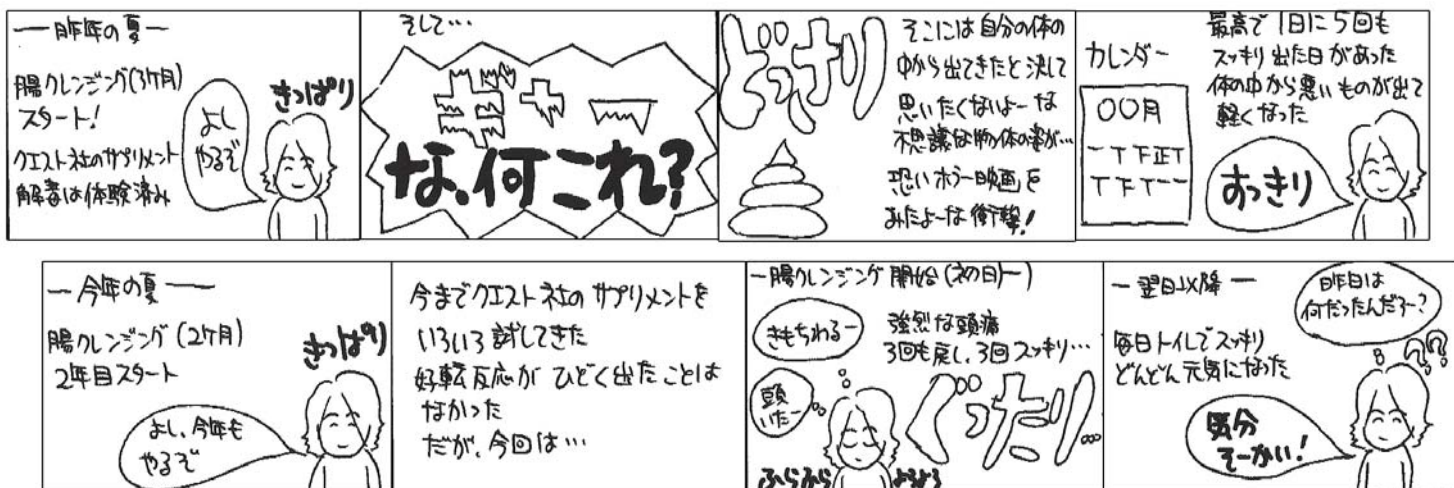 ― 昨年の夏 ―
腸クレンジング(3ケ月)
スタート!
クエスト社のサプリメント
解毒は体験済み
よし
やるぞ
きっぱり
そして…
ぎゃー
な、何これ?
どっさり
そこには自分の体の
中から出てきたと決して
思いたくないよーな
不思議な物体の姿が…
恐いホラー映画を
みたよーな衝撃!
カレンダー
〇〇月
一T下正T
T下T一一
最高で1日に5回も
スッキリ出た日があった
体の中から悪いものが出て
軽くなった
すっきり
― 今年の夏 ―
腸クレンジング(2ケ月)
2年目スタート
きっぱり
よし、今年も
やるぞ
今までクエスト社のサプリメントを
いろいろ試してきた
好転反応がひどく出たことは
なかった
だが、今回は…
―腸クレンジング開始(初日)―
きもちわるー
頭
いたー
強烈な頭痛
3回も戻し、3回スッキリ…
ぐったり…
ふらふら
よろよろ
― 翌日以降 ―
毎日トイレでスッキリ
どんどん元気になった
昨日は
何だったんだろー?
??
気分
そーかい!